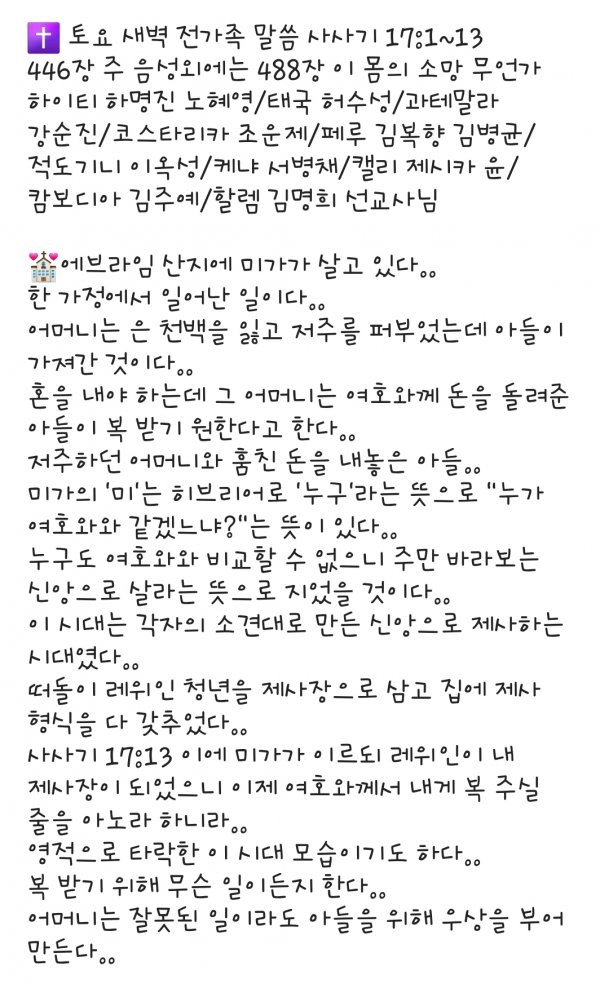 토요 새벽 전가족 말씀 사사기 17:1~13
446장 주 음성외에는 488장 이 몸의 소망 무언가
하이티 하명진 노혜영/태국 허수성/과테말라
강순진/코스타리카 조운제/페루 김복향 김병균/
적도기니 이옥성/케냐 서병채/캘리 제시카 윤/
캄보디아 김주예/할렘 김명희 선교사님
에브라임 산지에 미가가 살고 있다。。
한 가정에서 일어난 일이다。。
어머니는 은 천백을 잃고 저주를 퍼부었는데 아들이
가져간 것이다。。
혼을 내야 하는데 그 어머니는 여호와께 돈을 돌려준
아들이 복 받기 원한다고 한다。。
저주하던 어머니와 훔친 돈을 내놓은 아들。。
미가의 '미'는 히브리어로 '누구'라는 뜻으로 "누가
여호와와 같겠느냐?"는 뜻이 있다。。
누구도 여호와와 비교할 수 없으니 주만 바라보는
신앙으로 살라는 뜻으로 지었을 것이다。。
이 시대는 각자의 소견대로 만든 신앙으로 제사하는
시대였다。。
떠돌이 레위인 청년을 제사장으로 삼고 집에 제사
형식을 다 갖추었다。。
사사기 17:13 이에 미가가 이르되 레위인이 내
제사장이 되었으니 이제 여호와께서 내게 복 주실
줄을 아노라 하니라。。
영적으로 타락한 이 시대 모습이기도 하다。。
복 받기 위해 무슨 일이든지 한다。。
어머니는 잘못된 일이라도 아들을 위해 우상을 부어
만든다。。